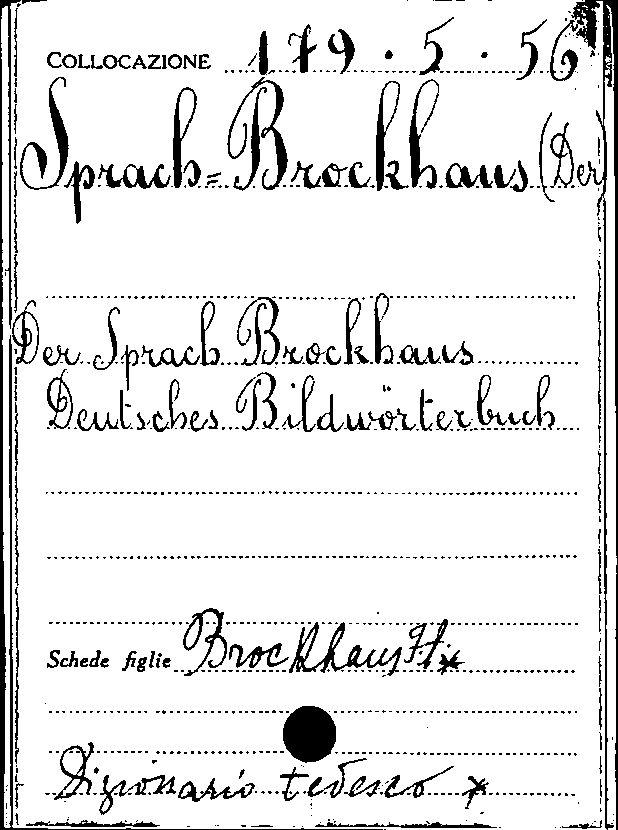 COLLOCAZIONE 179.5.56
Sprach=Brockhaus (Der)
Der Sprach Brockhaus
Deutsches Bildwörterbuch
Schede figlie Brockhaus
Dizionario tedesco *